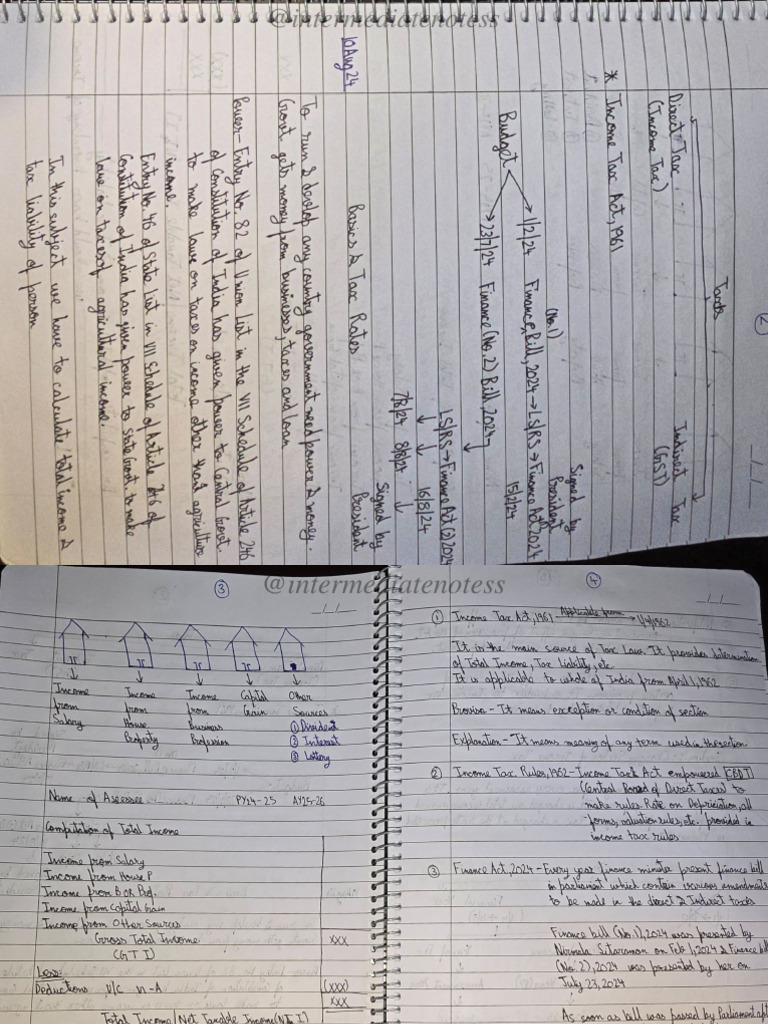 @intermediatenotess
②
Taxes
Direct Tax
(Income Tax)
Indirect Tax
(GST)
* Income Tax Act, 1961
Budget
1/2/24 Finance (No.1) Bill, 2024 → LS/RS → Finance Act 2024
Signed by
President
15/2/24
23/7/24 Finance (No. 2) Bill 2024
LS/RS → Finance Act (2) 2024
7/8/24 8/8/24
16/8/24
Signed by
President
10 Aug 24
Basics & Tax Rates
To run & develop any country government need power & money.
Govt gets money from businesses, taxes and loan
Power - Entry No. 82 of Union List in the VII Schedule of Article 246
of Constitution of India has given power to Central Govt.
to make laws on taxes on income other than agriculture
income.
Entry No. 46 of State List in VII Schedule of Article 246 of
Constitution of India has given power to State Govt. to make
laws on taxes of agricultural income.
In this subject we have to calculate total income &
tax liability of person
@intermediatenotess
③
Income
from
Salary
Income
from
House
Property
Income
from
Business
Profession
Capital
Gain
Other
Sources
① Dividend
② Interest
③ Lottery
Name of Assessee PY24-25 AY25-26
Computation of Total Income
Income from Salary
Income from House P
Income from B OR Prof.
Income from Capital Gain
Income from Other Sources
Gross Total Income XXX
(GTI)
Less:
Deductions U/C VI-A (XXX)
XXX
Total Income/Net Taxable Income (NTI)
④
① Income Tax Act, 1961 Applicable from → 1/4/1962
It is the main source of Tax Law. It provides determination
of Total Income, Tax Liability, etc.
It is applicable to whole of India from April 1, 1962
Proviso - It means exception or condition of section
Explanation - It means meaning of any term used in the section
② Income Tax Rules, 1962 - Income Tax Act empowered [CBDT]
(Central Board of Direct Taxes) to
make rules. Rate on Depriciation, all
forms, valuation rules, etc. provided in
income tax rules
③ Finance Act, 2024 - Every year finance minister present finance bill
in parliament which contain various amendments
to be made in the direct & Indirect taxes
Finance bill (No. 1), 2024 was presented by
Nirmala Sitaraman on Feb 1, 2024 & Finance bill
(No. 2), 2024 was presented by her on
July 23, 2024
As soon as bill was passed by Parliament aft